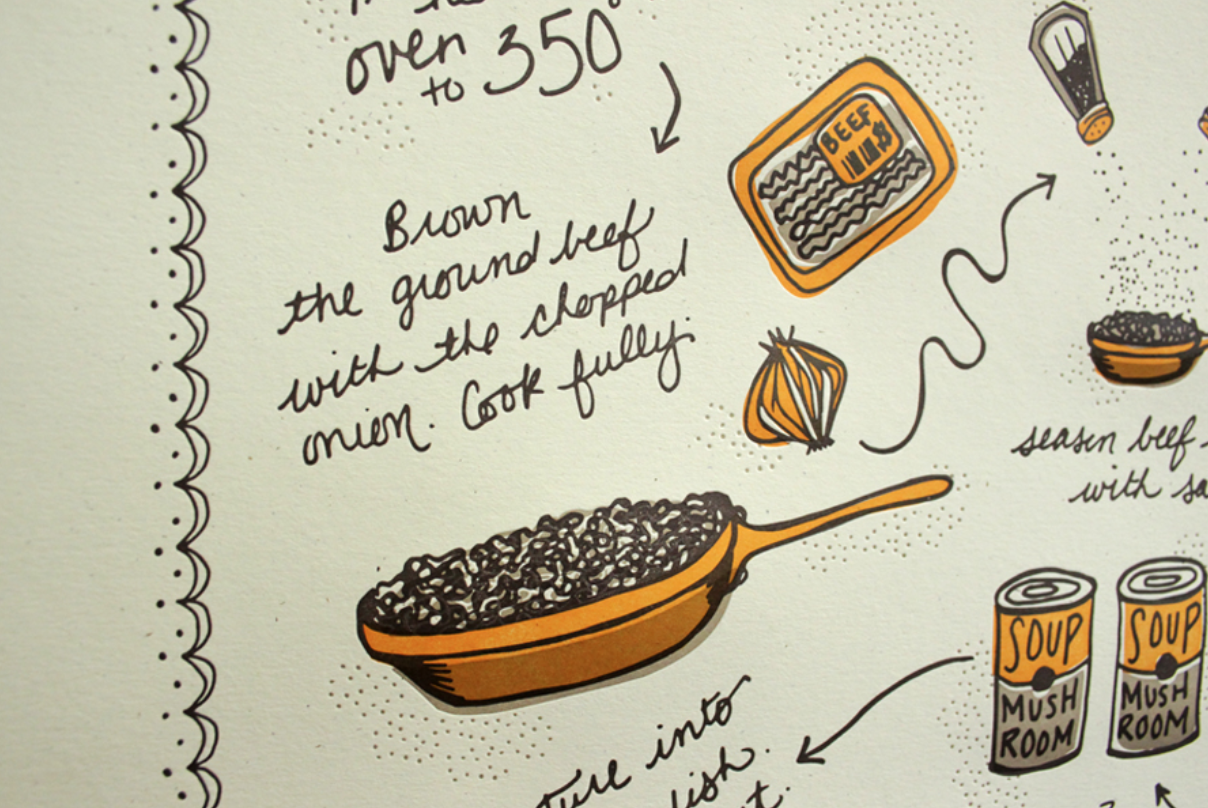 oven
to 350°
Brown
the ground beef
with the chopped
onion. Cook fully.
BEEF
$
season beef
with
SOUP
MUSH
ROOM
SOUP
MUSH
ROOM
into